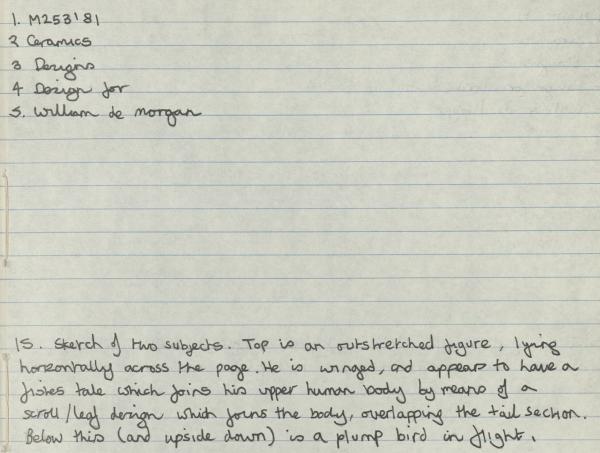 1. M253'81
2 Ceramics
3 Designs
4 Design for
5. William de morgan
15. Sketch of two subjects. Top is an outstretched figure, lying
horizontally across the page. He is winged, and appears to have a
fishes tale which joins his upper human body by means of a
scroll/leaf design which joins the body, overlapping the tail section.
Below this (and upside down) is a plump bird in flight.